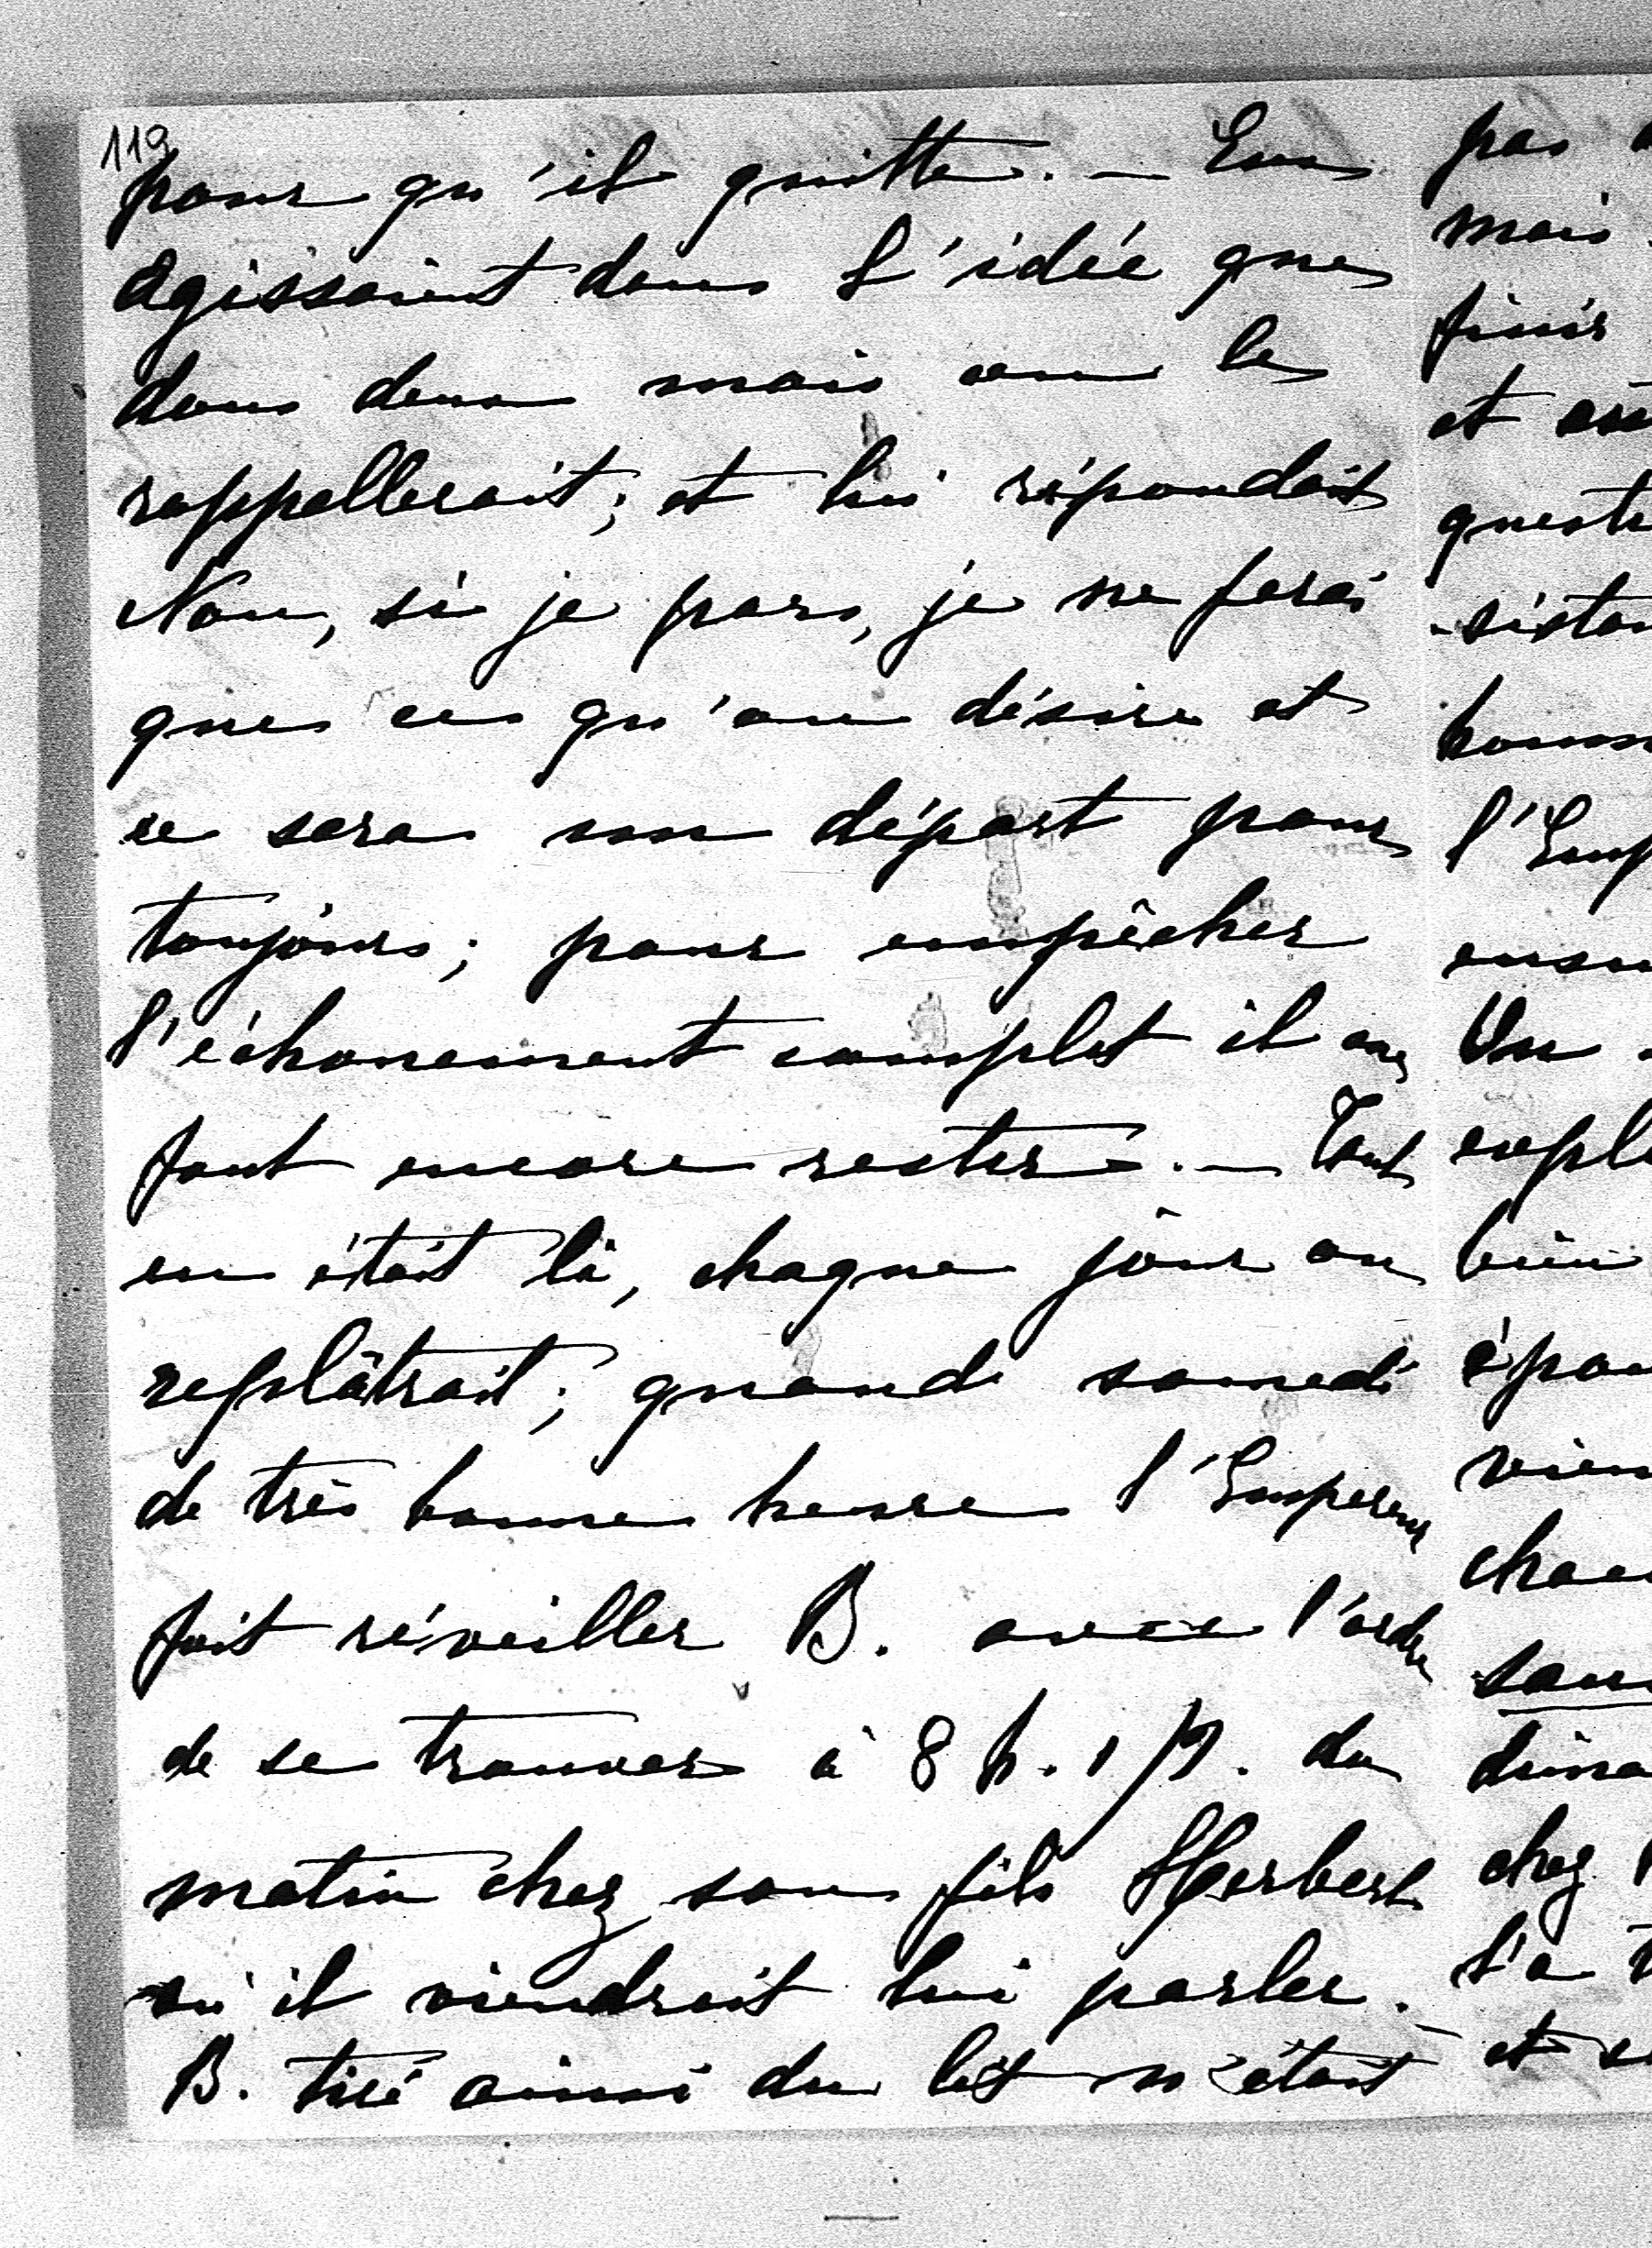 119
pour qu'il quitte. — Eux
agissaient dans l'idée que
dans deux mois on le
rappellerait; et lui répondait
Non, si je pars, je ne ferai
que ce qu'on désire et
ce sera mon départ pour
toujours; pour empêcher
l'échouement complet il me
faut encore rester. — Tout
en était là, chaque jour on
replâtrait; quand samedi
de très bonne heure l'Empereur
fait réveiller B. avec l'ordre
de se trouver à 8 h. 1/2. du
matin chez son fils Herbert
où il viendrait lui parler.
B. tiré ainsi du lit n'était
pas
mais
finir
et
l'Emp
Un
bien
chez
l'a
et